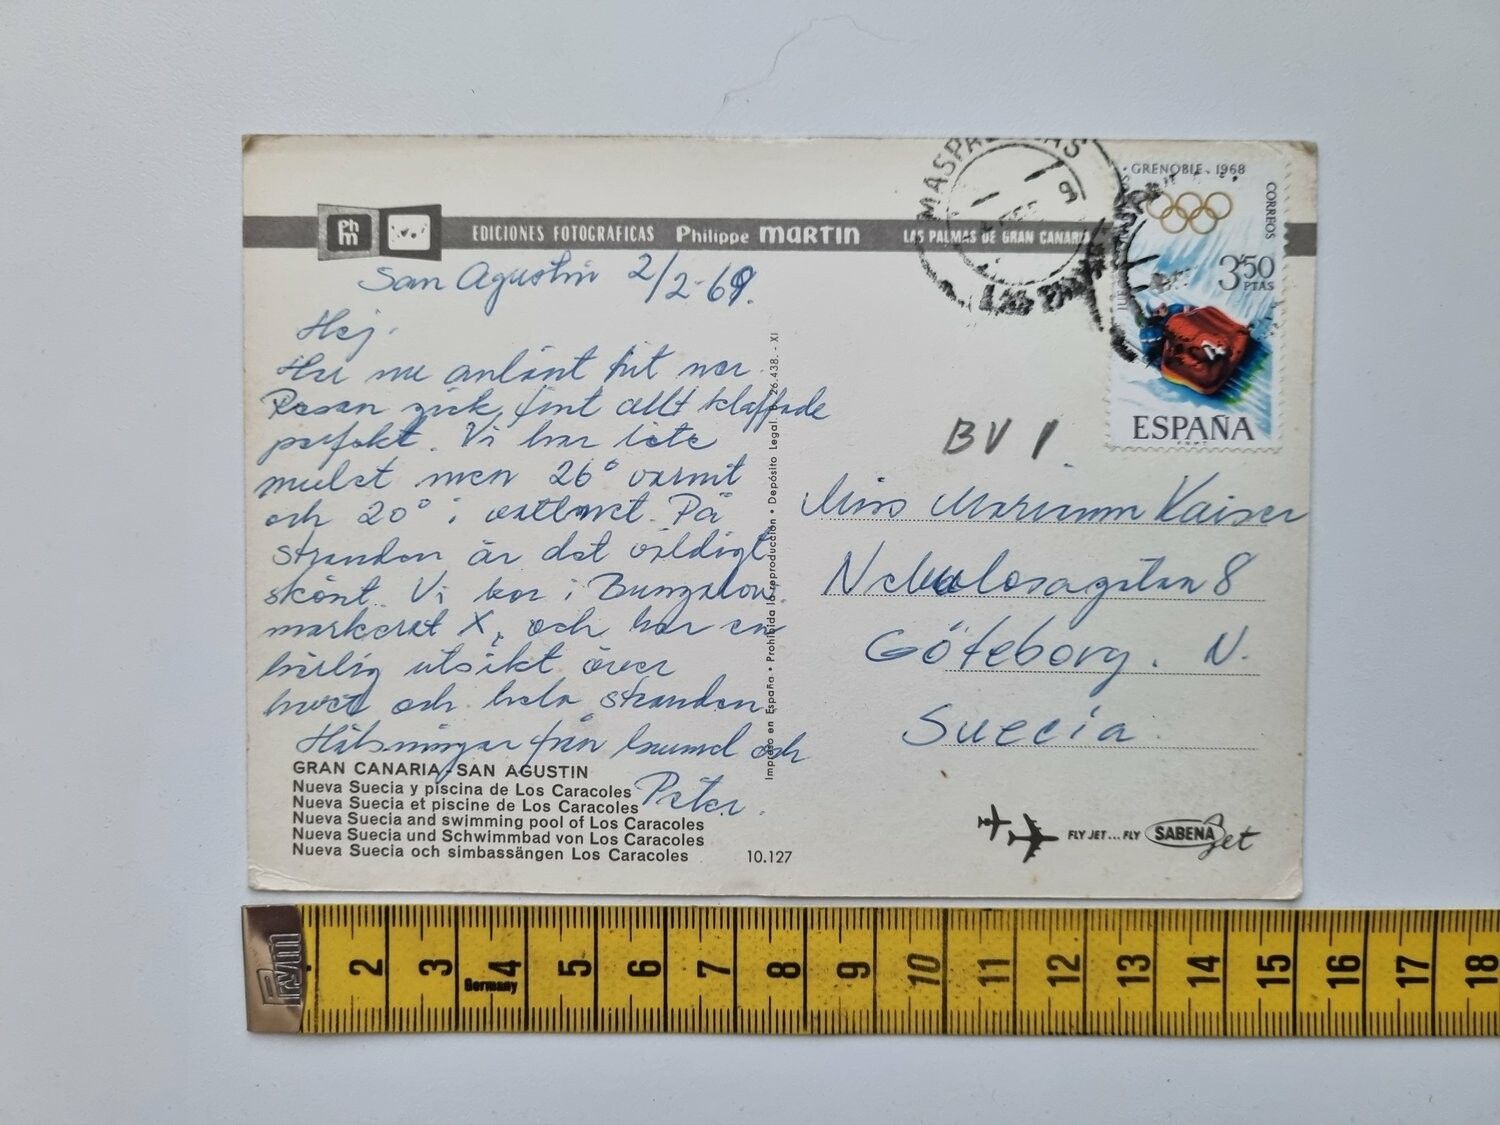 Phm
EDICIONES FOTOGRAFICAS Philippe MARTIN LAS PALMAS DE GRAN CANARIA
MASPALOMAS
LAS PALMAS
GRENOBLE · 1968
CORREOS
3'50
PTAS
ESPAÑA
F·N·M·T
San Agustin 2/2-69.
Hej.
Har nu anlänt hit ner.
Resan gick fint allt klaffade
perfekt. Vi har lite
mulet men 26° varmt
och 20° i vattnet. På
stranden är det väldigt
skönt. Vi bor i Bungalow.
markerat X, och har en
härlig utsikt över
havet och hela stranden
Hälsningar från och
Peter.
GRAN CANARIA-SAN AGUSTIN
Nueva Suecia y piscina de Los Caracoles
Nueva Suecia et piscine de Los Caracoles
Nueva Suecia and swimming pool of Los Caracoles
Nueva Suecia und Schwimmbad von Los Caracoles
Nueva Suecia och simbassängen Los Caracoles
10.127
Impreso en España • Prohibida la reproducción • Depósito Legal. 26.438. - XI
BV 1
Miss Mariann Kaiser
Nebulosagatan 8
Göteborg. N.
Suecia.
FLY JET... FLY SABENA Jet
Prym
2 3 4 5 6 7 8 9 10 11 12 13 14 15 16 17 18
Germany